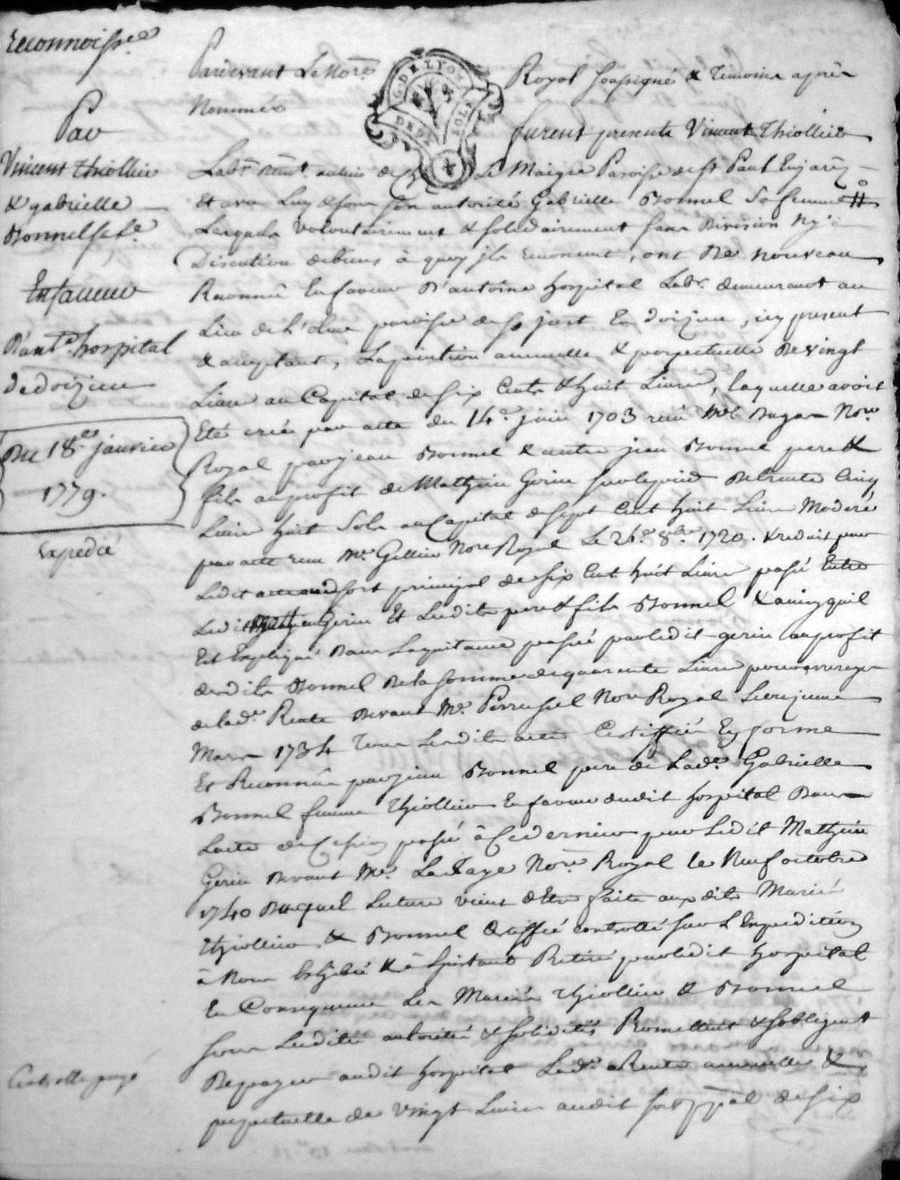 Reconnoisse
Par
Vincent thiollier
& gabrielle
Bonnel sa fe
En faveur
D'ant. hospital
de doizieu
Du 18e janvier
1779.
Expedié
G. DE LYON
Pardevant Le Nore Royal soussigné & temoins après
Nommés furent presents Vincent Thiollier
Labr au lieu de Le Maigre Paroisse de st Paul En jarez
Et avec luy & sous son autorité Gabrielle Bonnel Sa femme #
Lesquels volontairement & solidairement sans Division ny
Discution de biens à quoy ils renoncent, ont De nouveau
Reconnû En faveur D'antoine hospital Labr demeurant au
Lieu de paroisse de st just En doizieu, icy present
& acceptant, La pention annuelle & perpetuelle De vingt
Livre au Capital de six Cents & huit Livre, laquelle avoit
Eté créée par acte du 14e juin 1703 reçû Me Nore
Royal par jean Bonnel & autre jean Bonnel pere &
fils au profit de Mathieu Gerin sur le pied De trente Cinq
Livre huit Sols au Capital de sept Cent huit Livre Moderé
par acte reçu Me Nore Royal Le 26e 8bre 1720. & reduit par
Ledit acte au sort principal de six Cent huit Livre passé Entre
Ledit Gerin Et Lesdits pere & fils Bonnel & ainsy qu'il
Est Expliqué Dans La quitance passée par ledit gerin au profit
desdits Bonnel De la somme de quarente Livre pour arrerages
de lade Rente Devant Me Nore Royal Le
Mars 1734 Tous Lesdits actes En forme
Et Reconnûe par jean Bonnel pere de Lade Gabrielle
Bonnel femme thiollier En faveur dudit hospital Dans
L'acte de Cession passé à Ce dernier par Ledit Mathieu
Gerin Devant Me La faye Nore Royal le Neuf octobre
1740 Duquel Lecture vient d'Etre faite auxdits Mariés
thiollier & Bonnel controllé sur L'Expedition
à Nous & à L'instant Retiré par ledit hospital
En Consequence Les Mariés thiollier & Bonnel
sous Lesdites autorité & solidité Promettent & s'obligent
De payer audit hospital Lade Rente annuelle &
perpetuelle de vingt Livres audit sort ppal de six